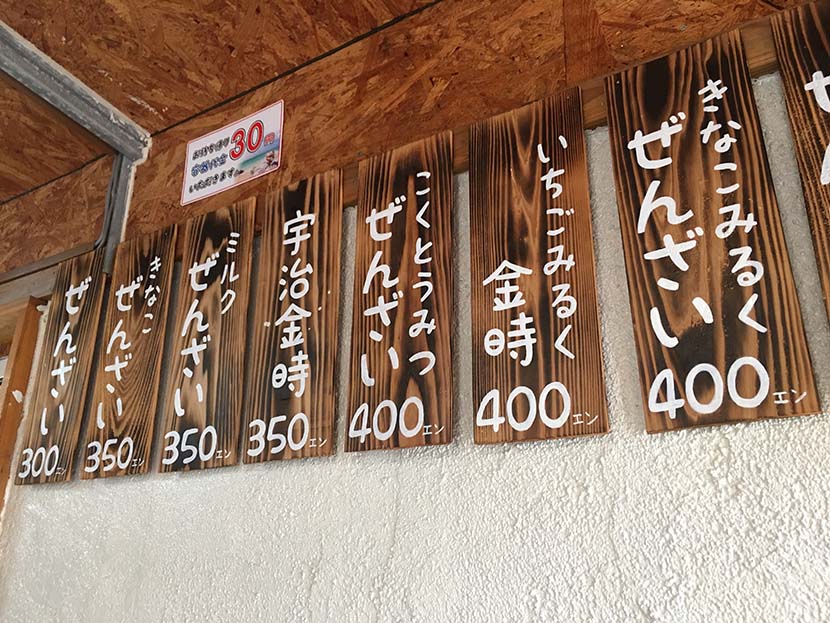 お持ち帰り
容器代金30円
いただきます。
ぜんざい
300エン
きなこ
ぜんざい
350エン
ミルク
ぜんざい
350エン
宇治金時
350エン
こくとうみつ
ぜんざい
400エン
いちごみるく
金時
400エン
きなこみるく
ぜんざい
400エン